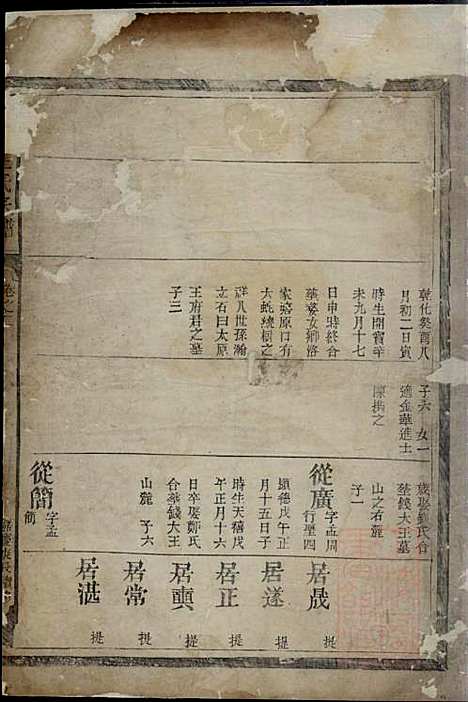 乾化癸酉八
月初二日寅
時生開寶辛
未九月十七
日申時終合
葬婺女鄉洛
家嶺原口有
大蛇繞樹之
祥八世孫瀚
立石曰太原
王府君之墓
子三
子六 女一
適金華進士
陳操之
歲娶劉氏合
葬錢大王墓
山之右麓
子一
從廣
字孟周
行聖四
顯德戊午正
月十五日子
時生天禧戊
午正月十六
日卒娶鄭氏
合葬錢大王
山麓 子六
從簡
字孟
簡
居晟
居遂
提
居正
提
居奭
提
居常
提
居湛
提